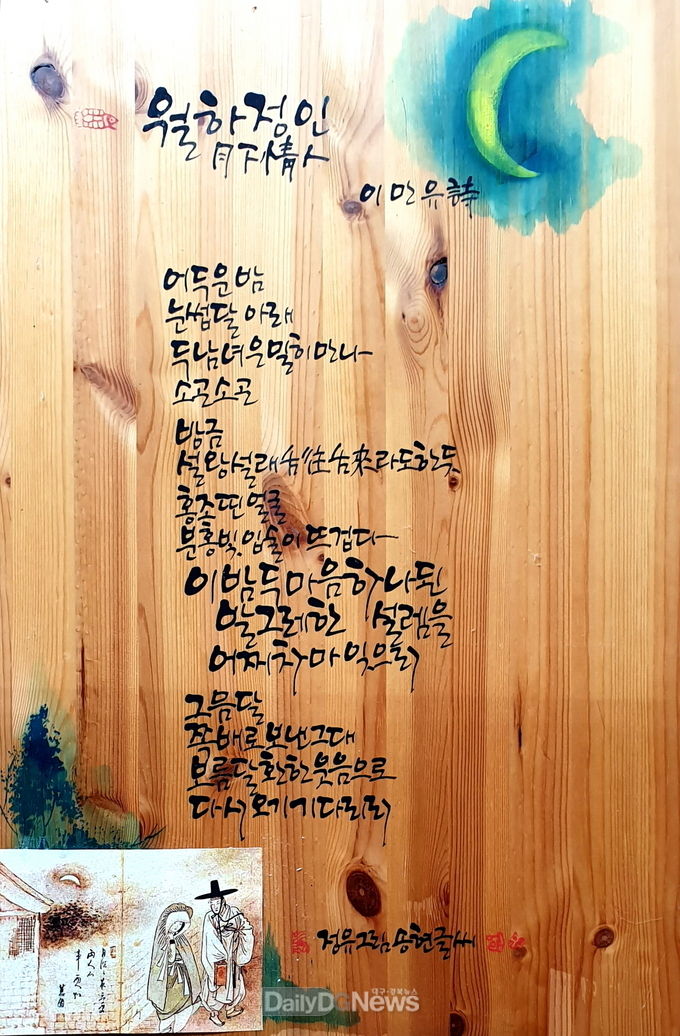 월하정인
月下情人
이만유 詩
어두운 밤
눈썹달 아래
두 남녀 은밀히 만나
소곤소곤
방금
설왕설래 舌往舌來라도 한듯
홍조 띤 얼굴
분홍빛 입술이 뜨겁다
이 밤 두 마음 하나 된
발그레한 설렘을
어찌 차마 잊으리
그믐달
쪽배로 보낸 그대
보름달 환한 웃음으로
다시 오기 기다리리
정유그림 송현글씨
대구·경북뉴스
DailyDGNews